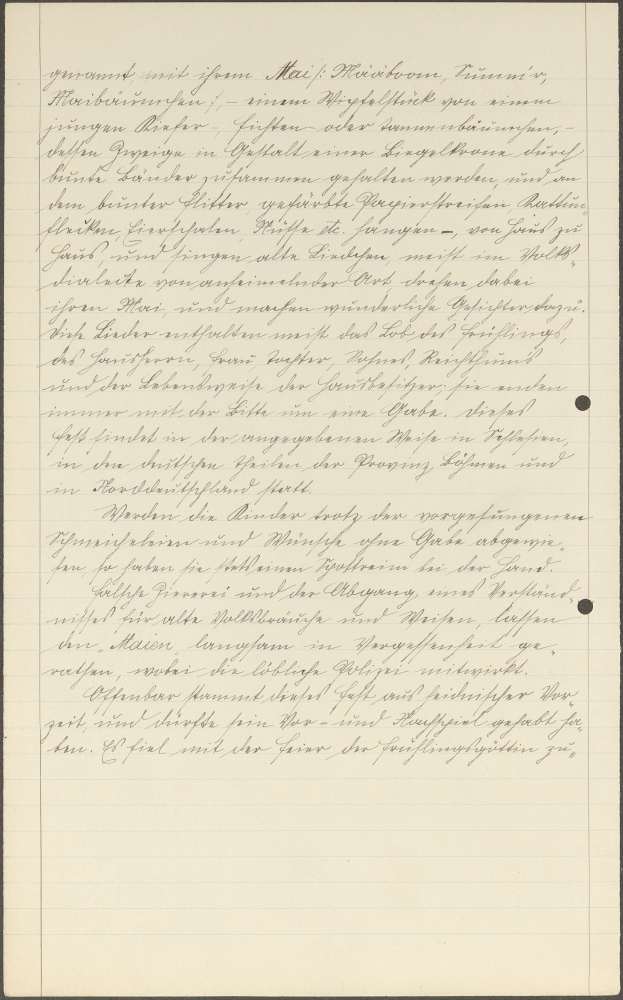 genannt, mit ihrem Mai /: Määboom, Summ'r,
Maibäumchen :/, – einem Wipfelstück von einem
jungen Kiefer-, Fichten- oder Tannenbäumchen, –
dessen Zweige in Gestalt einer Biegelkrone durch
bunte Bänder zusammen gehalten werden, und an
dem bunter Flitter, gefärbte Papierstreifen, Kattun-
flecken, Eierschalen, Nüsse etc. hangen –, von Haus zu
Haus, und singen alte Liedchen, meist im Volks-
dialecte von anheimelnder Art, drehen dabei
ihren Mai, und machen wunderliche Gesichter dazu.
Diese Lieder enthalten meist das Lob des Frühlings,
des Hausherrn, Frau, Tochter, Sohnes, Reichthums
und der Lebensweise der Hausbesitzer; sie enden
immer mit der Bitte um eine Gabe. Dieses
Fest findet in der angegebenen Weise in Schlesien,
in den deutschen Theilen der Provinz Böhmen und
in Norddeutschland statt.
Werden die Kinder trotz der vorgesungenen
Schmeicheleien und Wünsche ohne Gabe abgewie-
sen, so haben sie stets einen Spottreim bei der Hand.
Falsche Ziererei und der Abgang eines Verständ-
nisses für alte Volksbräuche und Weisen, lassen
den „Maien“ langsam in Vergessenheit ge-
rathen, wobei die löbliche Polizei mitwirkt.
Offenbar stammt dieses Fest aus heidnischer Vor-
zeit, und dürfte sein Vor- und Nachspiel gehabt ha-
ben. Es fiel mit der Feier der Frühlingsgöttin zu-